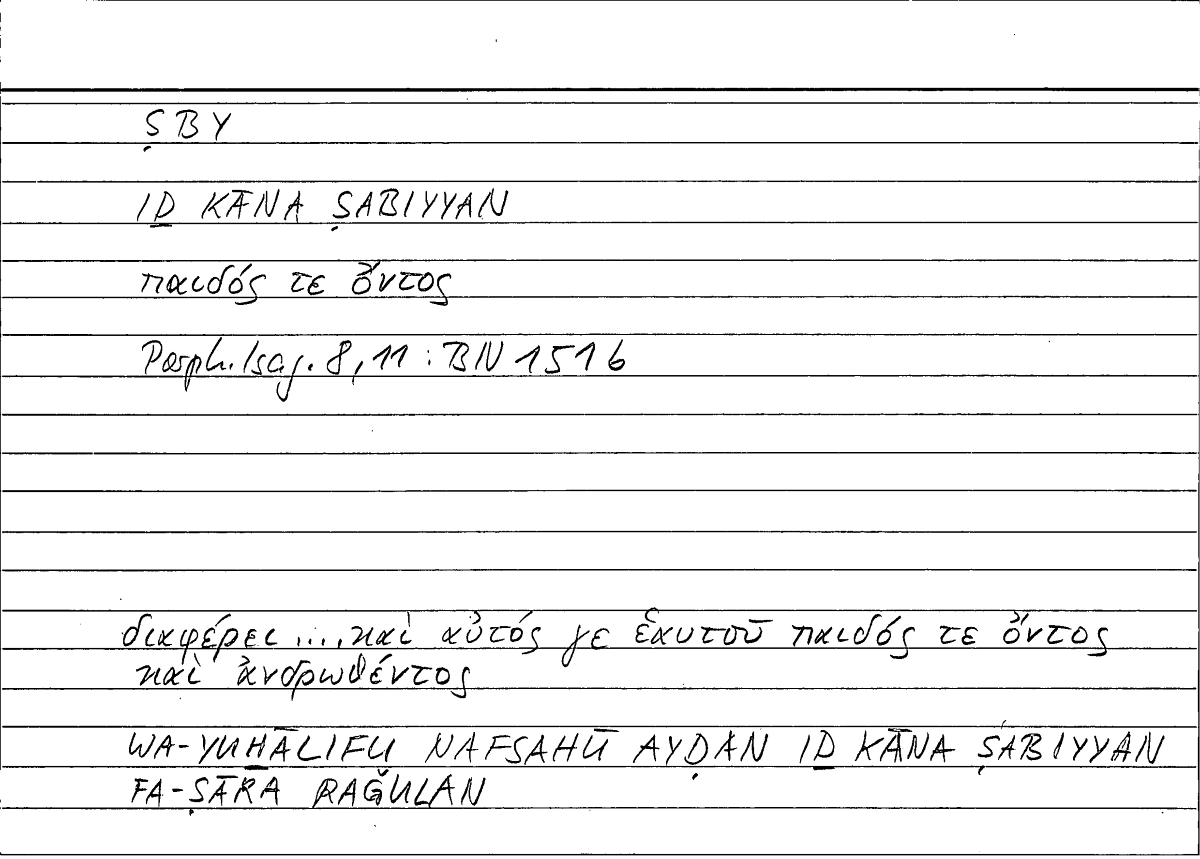 ṢBY
IḎ KĀNA ṢABIYYAN
παιδός τε ὄντος
Porph. Isag. 8, 11 : BN 1516
διαφέρει .... καὶ αὐτός γε ἑαυτοῦ παιδός τε ὄντος
καὶ ἀνδρωθέντος
WA-YUḪĀLIFU NAFSAHŪ AYḌAN IḎ KĀNA ṢABIYYAN
FA-ṢĀRA RAǦULAN